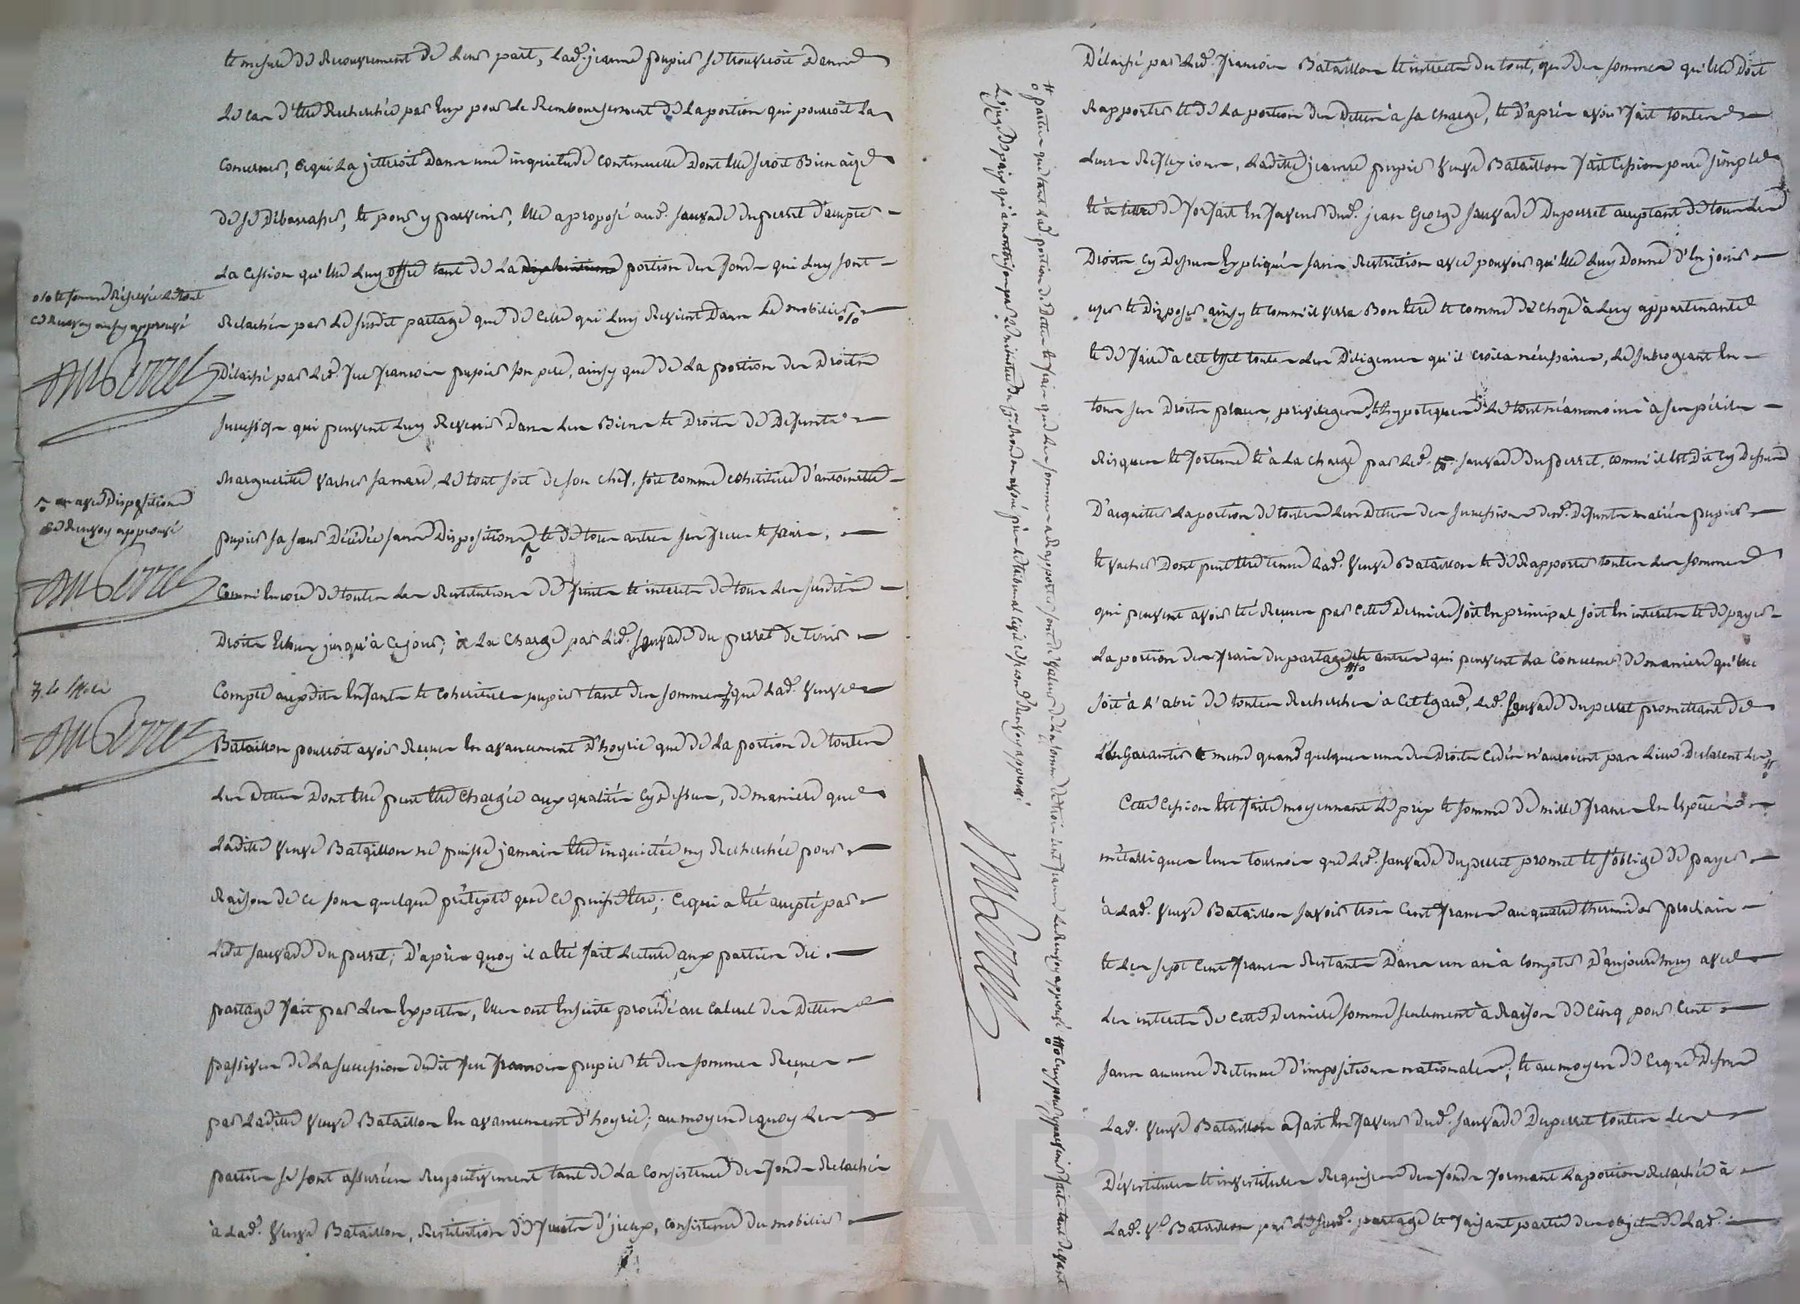 et mesure de Recouvrement de leur part, lad.e jeanne pupier se trouveroit Dans
le cas d'Etre Recherchée par Eux pour le Remboursement de la portion qui pourroit la
Concerner, cequi la jetteroit Dans une inquietude continuelle Dont Elle seroit Bien aize
de se Débarasser, Et pour y parvenir, Elle a proposé aud. Sauvade duperret d'accepter
la Cession qu'Elle luy offre tant de la portion des fonds qui luy sont
Relachés par le susdit partage que de Celle qui luy Revient Dans le mobilier
Délaissé par led. feu francois pupier son pere, ainsy que de la portion des Droits
Successifs qui peuvent luy Revenir Dans les Biens Et Droits de Defunte
Marguerite vacher sa mere, le tout soit de son chef, soit comme cohéritiere d'antoinette
pupier sa soeur Décédée sans Disposition, Et de tous autres ses freres Et soeurs,
Comme Encore de toutes les Restitutions de fruits Et interets de tous les susdits
Droits Echus jusqu'à ce jour; à la Charge par led. Sauvade du perret de tenir
Compte auxdits Enfants Et coheritiers pupier tant des sommes que lad. Veuve
Bataillon pourroit avoir Recues En avancement d'hoyrie que de la portion de toutes
les Dettes Dont Elle peut Etre Chargée aux qualités cy dessus, de maniere que
ladite Veuve Bataillon ne puisse jamais Etre inquietée ny Recherchée pour
Raison de ce sous quelque prétexte que ce puisse Etre; Cequi a Eté accepté par
ledit Sauvade du perret; D'après quoy il a Eté fait lecture aux parties du
partage fait par les Experts, Elles ont Ensuite procédé au Calcul des Dettes
passives de la succession dudit feu francois pupier Et des sommes Recues
par ladite Veuve Bataillon En avancement d'hoyrie; au moyen dequoy les
parties se sont assurées Respectivement tant de la Consistence des fonds Relachés
à lad. Veuve Bataillon, Restitution de fruits d'yceux, consistence du mobilier
o/o Et somme Réservée Le tout
Ce Renvoy ainsy approuvé
avec Disposition
ce Renvoy approuvé
duperret
# o parties que tant lad. portion de Dettes Et frais que les sommes à Rapporter sont de valeur de la somme de trois cent francs Le Renvoy approuvé
Délaissé par led. francois Bataillon Et interets du tout, que des sommes qu'Elle Doit
Rapporter Et de la portion des Dettes à sa charge, Et d'après avoir fait toutes
leurs Reflexions, ladite jeanne pupier Veuve Bataillon fait Cession pure simple
Et à titre de forfait En faveur dud. jean George Sauvade Duperret acceptant de tous les
Droits cy Dessus Expliqués sans Restriction avec pouvoir qu'Elle luy Donne d'En jouir
user Et Disposer ainsy Et comm'il verra Bon Etre Et comme de chose à luy appartenante
Et de faire à cet Effet toutes les Diligences qu'il croira nécessaires, le subrogeant En
tous ses Droits places, privileges Et hypoteques Et le tout néanmoins à ses périls
Risques Et fortune Et à la charge par led. Sauvade du perret, comm'il Est Dit cy Dessus
D'acquiter la portion de toutes les Dettes des successions desd. Defunts mariés pupier
Et vacher Dont peut Etre tenue lad. Veuve Bataillon Et de Rapporter toutes les sommes
qui peuvent avoir Eté Recues par cette Derniere soit En principal soit En interets Et de payer
la portion des frais du partage Et autres qui peuvent la Concerner de maniere qu'Elle
soit à l'abri de toutes Recherches à Cet Egard, led. Sauvade duperret promettant de
l'En Garantir Et meme quand quelques uns des Droits cédés n'auroient pas Lieu. Declarent les
Cette Cession Est faite moyennant le prix Et somme de mille francs En Espèces
métalliques Cours tournois que led. Sauvade duperret promet Et s'oblige de payer
à lad. Veuve Bataillon savoir trois Cent francs au quatre thermidor prochain
Et les sept Cent francs Restants Dans un an à compter D'aujourd'huy avec
les interets de cette Derniere somme seulement à Raison de Cinq pour Cent
sans aucune Retenue d'impositions nationales, Et au moyen de ce que Dessus
lad. Veuve Bataillon a fait En faveur dud. Sauvade Duperret toutes les
Dévestitures Et investitures Requises des fonds formant la portion Relachée à
Lad. Ve. Bataillon par le susd. partage Et faisant partie des objets de lad.